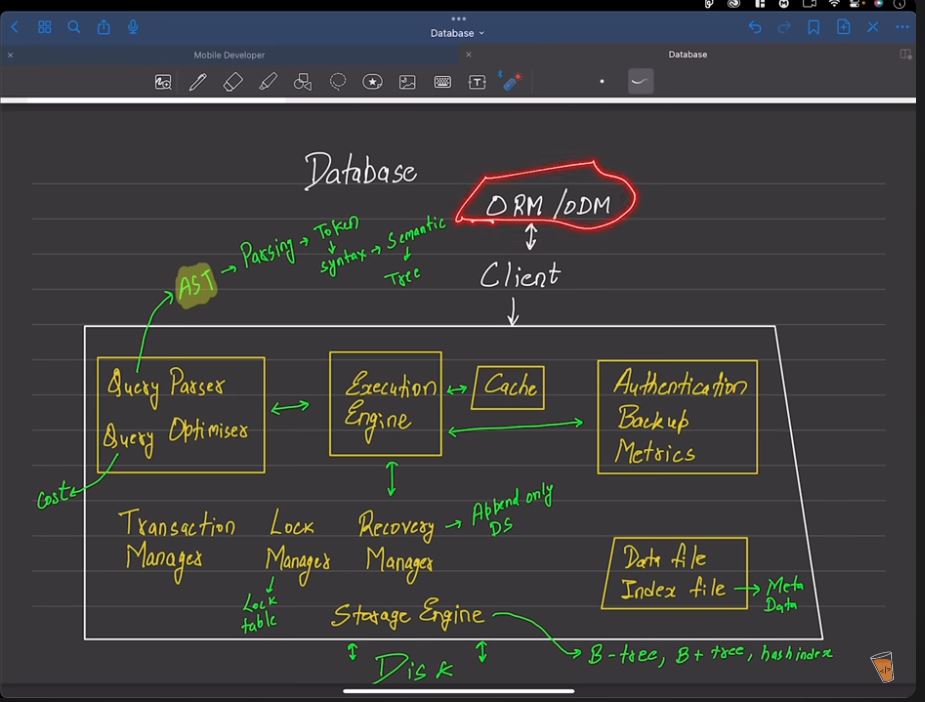 Database
Mobile Developer
Database
Database
ORM/ODM
Client
AST → Parsing → Token
↓
syntax → Semantic
↓
Tree
Query Parser
Query Optimiser
Cost
Execution
Engine
Cache
Authentication
Backup
Metrics
Transaction
Manager
Lock
Manager
Lock
table
Recovery
Manager
Append only
DS
Storage Engine
Data file
Index file
Meta
Data
B-tree, B+ tree, hash index
Disk